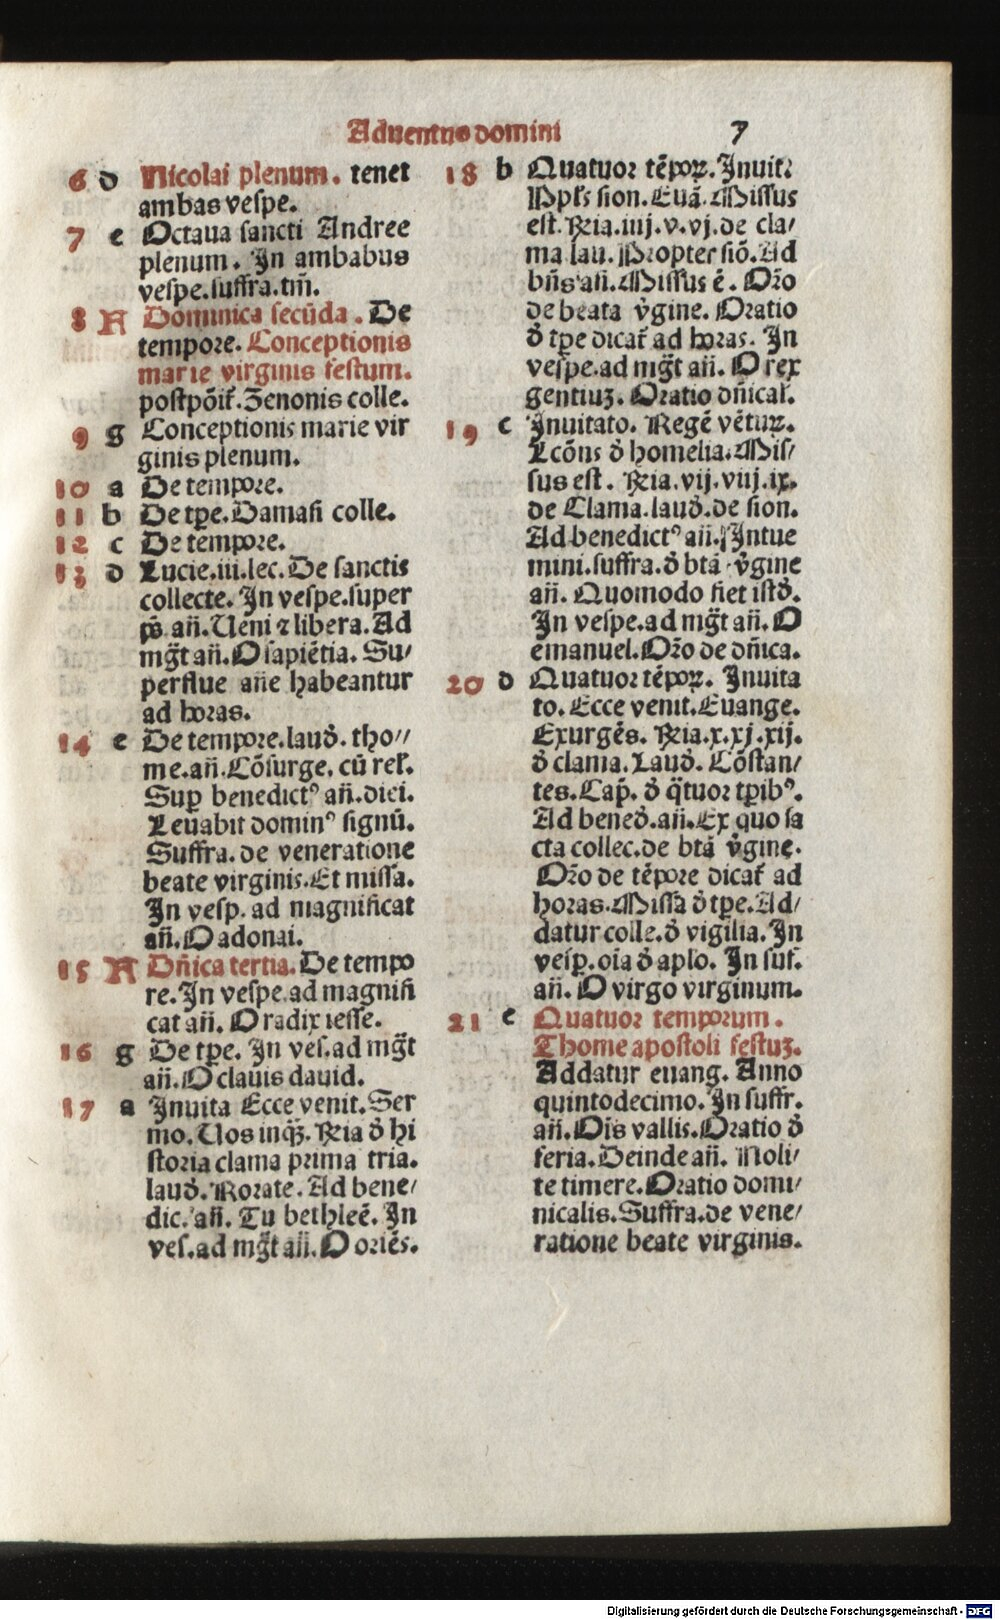 Aduentus domini
7
6 d Nicolai plenum. tenet
ambas vespe.
7 e Octaua sancti Andree
plenum. In ambabus
vespe.suffra.tm̄.
8 A Dominica secūda. De
tempore. Conceptionis
marie virginis festum.
postpōit̄. Zenonis colle.
9 g Conceptionis marie vir
ginis plenum.
10 a De tempore.
11 b De tpe. Damasi colle.
12 c De tempore.
13 d Lucie.iii.lec. De sanctis
collecte. In vespe.super
ps̄ an̄. Ueni ⁊ libera. Ad
mgt̄ an̄. O sapiētia. Su/
perflue ane habeantur
ad horas.
14 e De tempore.laud̄. tho//
me.an̄.Cōsurge. cū rel̄.
Suꝑ benedictꝰ an̄.diei.
Leuabit dominꝰ signū.
Suffra. de veneratione
beate virginis.Et missa.
In vesp. ad magnificat
an̄. O adonai.
15 A Dn̄ica tertia. De tempo
re. In vespe.ad magnifi
cat an̄. O radix iesse.
16 g De tpe. In ves.ad mgt̄
an̄. O clauis dauid.
17 a Inuita Ecce venit. Ser
mo. Uos inqꝫ. Ria d̄ hi
storia clama prima tria.
laud̄. Rorate. Ad bene/
dic. an̄. Tu bethleē. In
ves.ad mgt̄ an̄. O oriēs.
18 b Quatuor tēpoꝝ. Inuit.
Ppl̄s sion. Euā. Missus
est. Ria.iiij.v.vj.de cla/
ma lau. Propter siō. Ad
bn̄s an̄. Missus ē. Oro
de beata v̄gine. Oratio
d̄ tpe dicat̄ ad horas. In
vespe.ad mgt̄ an̄. O rex
gentiuꝫ. Oratio dn̄ical̄.
19 c Inuitato. Regē vētuꝝ.
Lcōns d̄ homelia. Mis/
sus est. Ria.vij.viij.ix.
de Clama.laud̄.de sion.
Ad benedictꝰ an̄. Intue
mini.suffra.d̄ btā v̄gine
an̄. Quomodo fiet istd̄.
In vespe.ad mgt̄ an̄. O
emanuel. Oro de dn̄ica.
20 d Quatuor tēpoꝝ. Inuita
to. Ecce venit. Euange.
Exurgēs. Ria.x.xj.xij.
d̄ clama. Laud̄. Cōstan/
tes. Cap̄. d̄ qtuor tꝑibꝰ.
Ad bened̄.an̄. Ex quo fa
cta collec.de btā v̄gine.
Oro de tēpore dicat̄ ad
horas. Missa d̄ tpe. Ad/
datur colle.d̄ vigilia. In
vesp̄.oīa d̄ aplo. In suf.
an̄. O virgo virginum.
21 e Quatuor temporum.
Thome apostoli festuꝫ.
Addatur euang. Anno
quintodecimo. In suffr.
an̄. Oīs vallis. Oratio d̄
feria. Deinde an̄. Noli/
te timere. Oratio domi/
nicalis. Suffra.de vene/
ratione beate virginis.
Digitalisierung gefördert durch die Deutsche Forschungsgemeinschaft - DFG